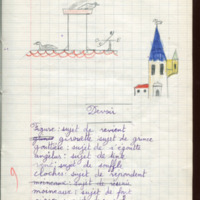 Devoir
Figure : sujet de revient
girouette sujet de grince
gouttière : sujet de s'égoutte
angelus : sujet de tinte
vent : sujet de souffle
cloches : sujet de répondent
moineaux : sujet de
moineaux : sujet de font